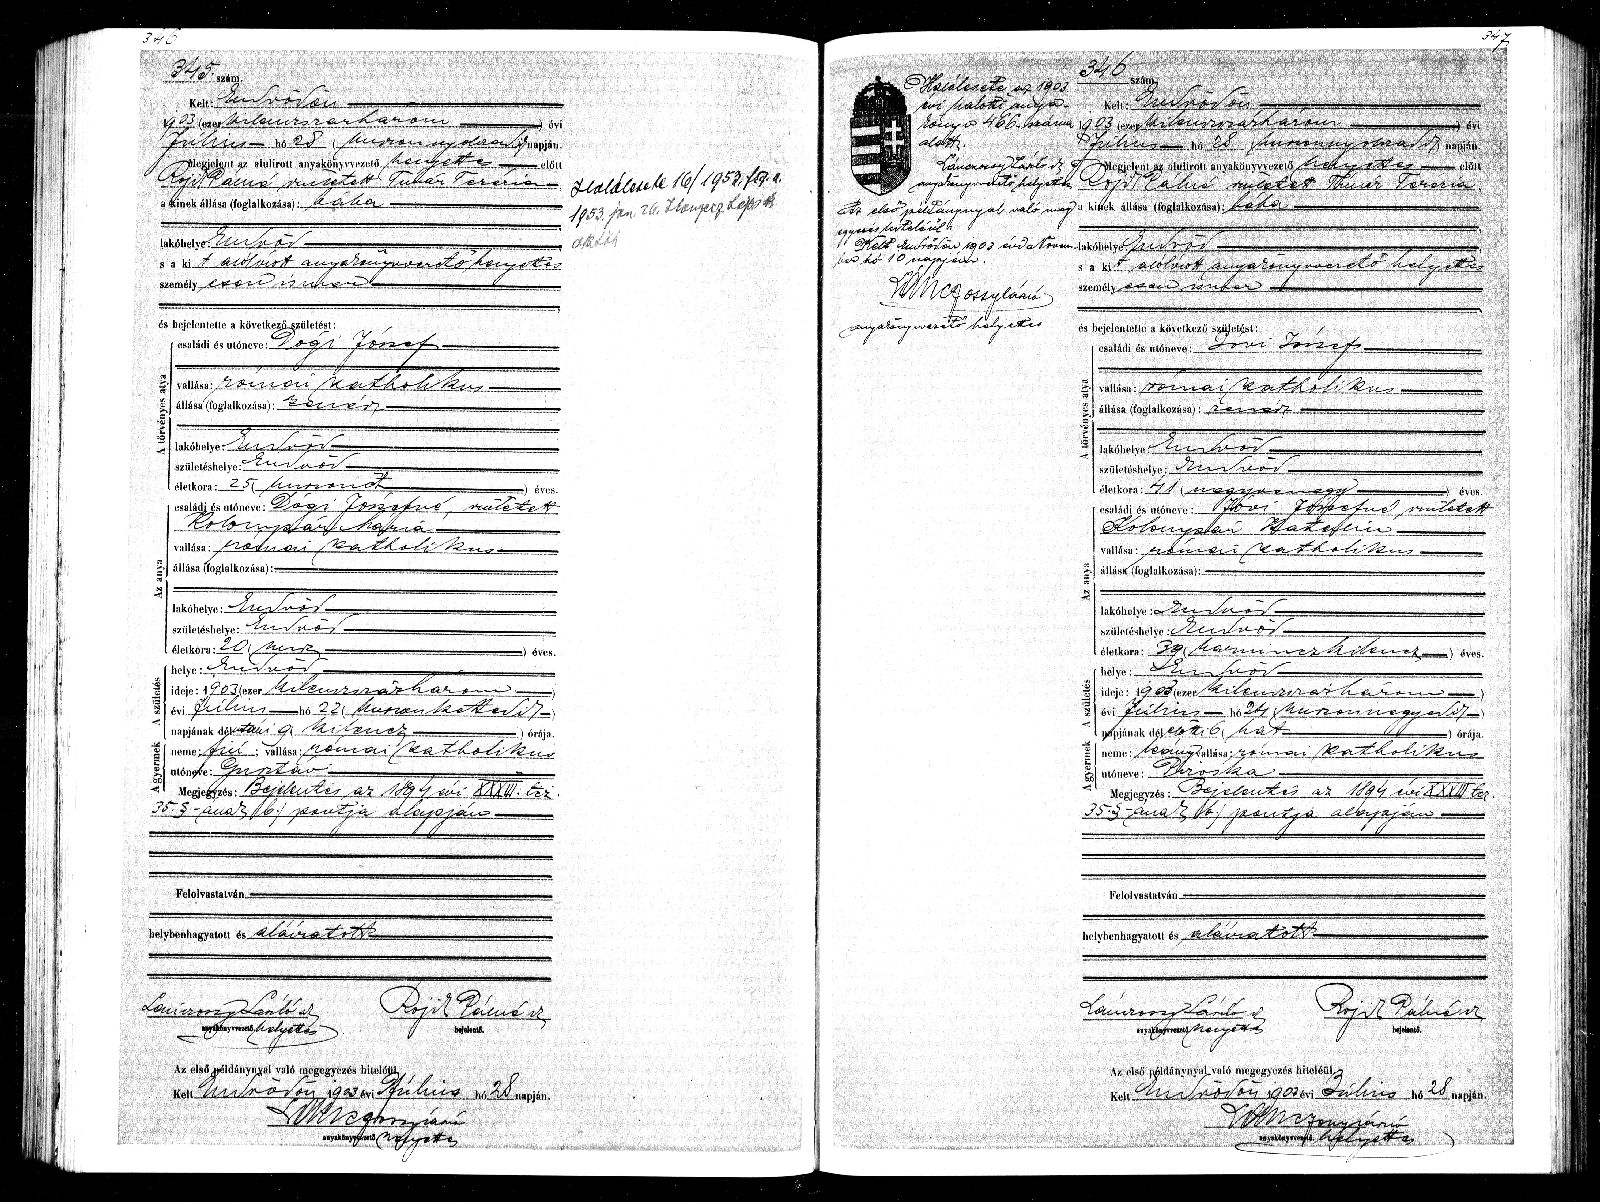 346
345. szám.
Kelt: Endrődön
1903 (ezerkilenczszázhárom) évi
Július hó 28 (huszonnyolcad) napján.
Megjelent az alulirott anyakönyvvezető helyettes előtt
Pálné született Teréria
a kinek állása (foglalkozása): bába
lakóhelye Endrőd
s a kit alólirott anyakönyvvezető helyettes
személyesen ismer
és bejelentette a következő születést:
A törvényes atya
családi és utóneve: Dógi József
vallása: római katholikus
állása (foglalkozása): zenész
lakóhelye Endrőd
születéshelye: Endrőd
életkora: 25 (huszonöt) éves.
Az anya
családi és utóneve: Dógi Józsefné, született
Kolompár Mária
vallása: római katholikus
állása (foglalkozása):
lakóhelye: Endrőd
születéshelye: Endrőd
életkora: 20 (husz) éves.
A születés
helye: Endrőd
ideje: 1903 (ezerkilenczszázhárom)
évi július hó 22 (huszonkettedik)
napjának dél 9 kilencz órája.
A gyermek
neme: fiú; vallása: római katholikus
utóneve: Gusztáv
Megjegyzés: Bejelentés az 1894 évi XXXIII. tcz.
35. §-ának b/ pontja alapján
Felolvastatván
helybenhagyatott és aláiratott
László sk
anyakönyvvezető helyettes
Pálné sk
bejelentő.
Az első példánynyal való megegyezés hiteléül,
Kelt Endrődön, 1903 évi Július hó 28 napján.
anyakönyvvezető helyettes
Halálesete 16/1953. f.
1953. jan. 26.
347
346 szám.
Kelt: Endrődön
1903 (ezerkilenczszázhárom) évi
Július hó 28 (huszonnyolcad) napján.
Megjelent az alulirott anyakönyvvezető helyettes előtt
Pálné született Teréria
a kinek állása (foglalkozása): bába
lakóhelye Endrőd
s a kit alólirott anyakönyvvezető helyettes
személyesen ismer
és bejelentette a következő születést:
A törvényes atya
családi és utóneve: József
vallása: római katholikus
állása (foglalkozása): zenész
lakóhelye Endrőd
születéshelye: Endrőd
életkora: 41 (negyvenegy) éves.
Az anya
családi és utóneve: Józsefné, született
Kolompár Katalin
vallása: római katholikus
állása (foglalkozása):
lakóhelye: Endrőd
születéshelye: Endrőd
életkora: 39 (harminczkilencz) éves.
A születés
helye: Endrőd
ideje: 1903 (ezerkilenczszázhárom)
évi július hó 24 (huszonnegyedik)
napjának dél előtti 6 hat órája.
A gyermek
neme: leány; vallása: római katholikus
utóneve: Piroska
Megjegyzés: Bejelentés az 1894 évi XXXIII tcz
35. §-ának b/ pontja alapján
Felolvastatván
helybenhagyatott és aláiratott
László sk
anyakönyvvezető helyettes
Pálné sk
bejelentő.
Az első példánynyal való megegyezés hiteléül,
Kelt Endrődön, 1903 évi Július hó 28 napján.
anyakönyvvezető helyettes
Halálesete az 1903
évi halotti anya-
könyv 466. száma
alatt.
László sk
anyakönyvvezető helyettes
Az első példánynyal való meg
egyezés hiteléül.
Kelt Endrődön 1903 évi Novem-
ber hó 10 napján.
anyakönyvvezető helyettes